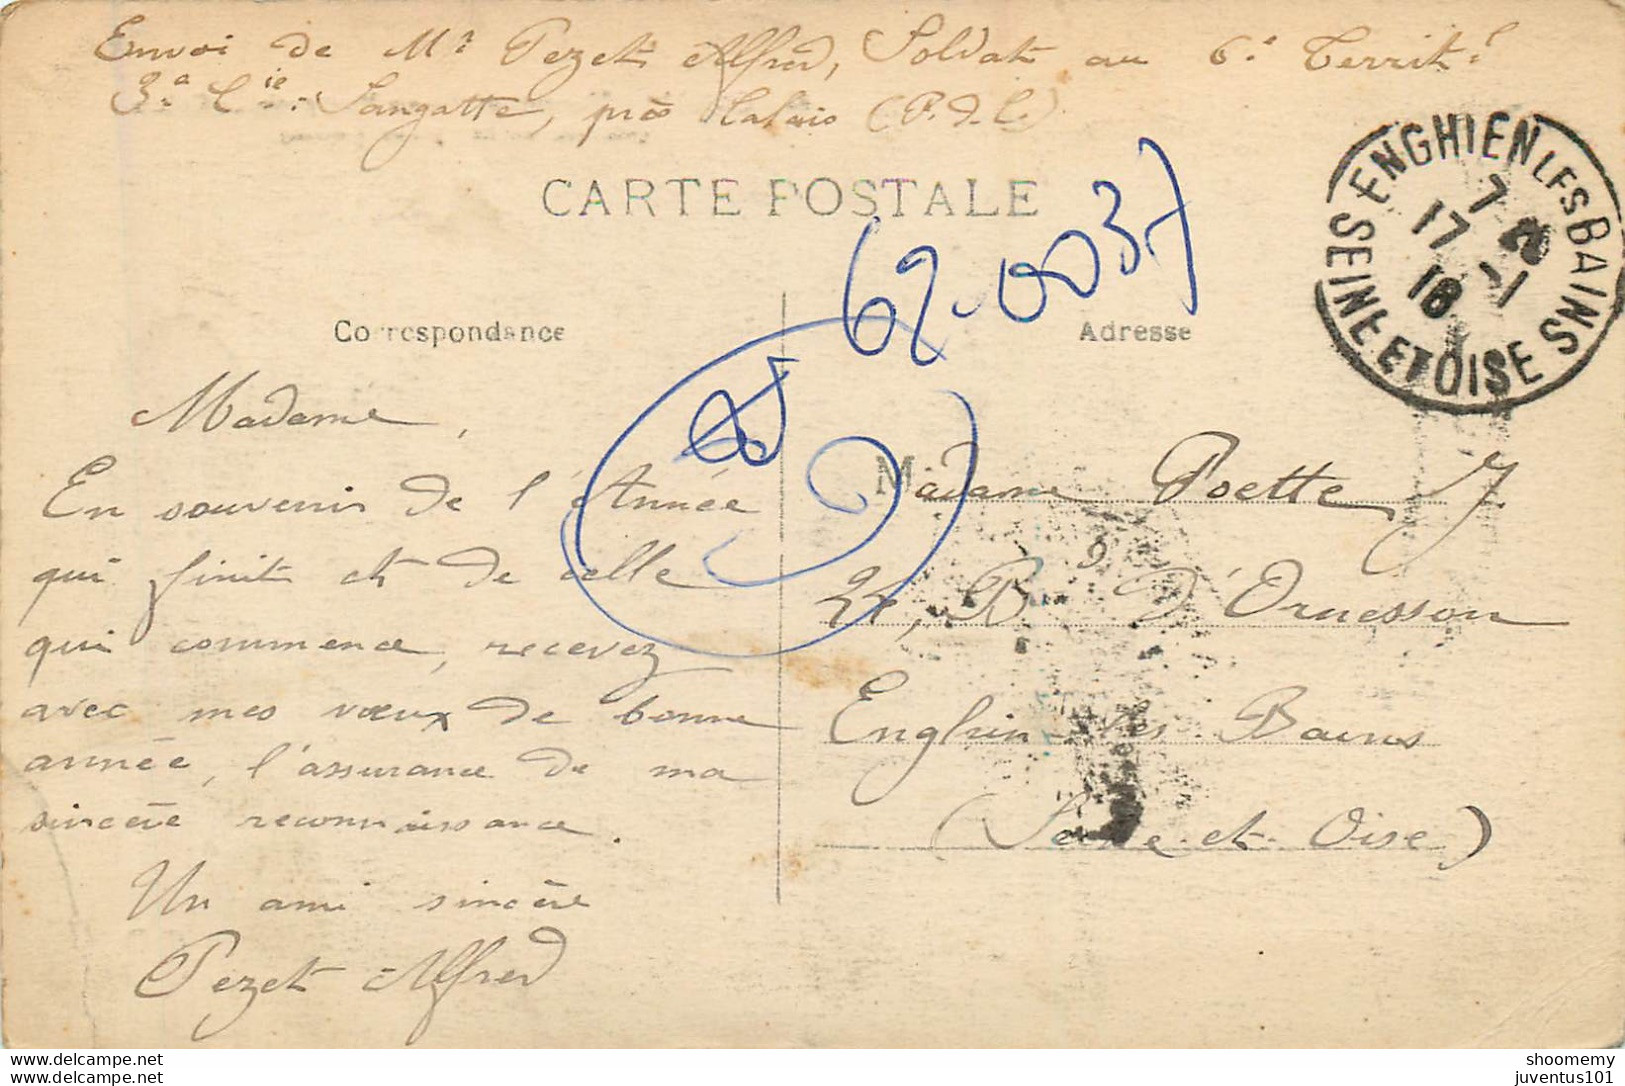 Envoi de Mr Pezet Alfred, Soldat au 6e Territl
3e Cie Sangatte, près Calais (P. d. C.)
CARTE POSTALE
62-0037
Correspondance
Adresse
ENGHIEN LES BAINS
7
17 - 1
16
SEINE ET OISE
Madame,
En souvenir de l'Année
qui finit et de celle
qui commence, recevez
avec mes vœux de bonne
année, l'assurance de ma
sincère reconnaissance.
Un ami sincère
Pezet Alfred
Madame Poette J
24, Bd d'Ormesson
Enghien les Bains
(Seine et Oise)
delcampe.net
shoomemy
juventus101